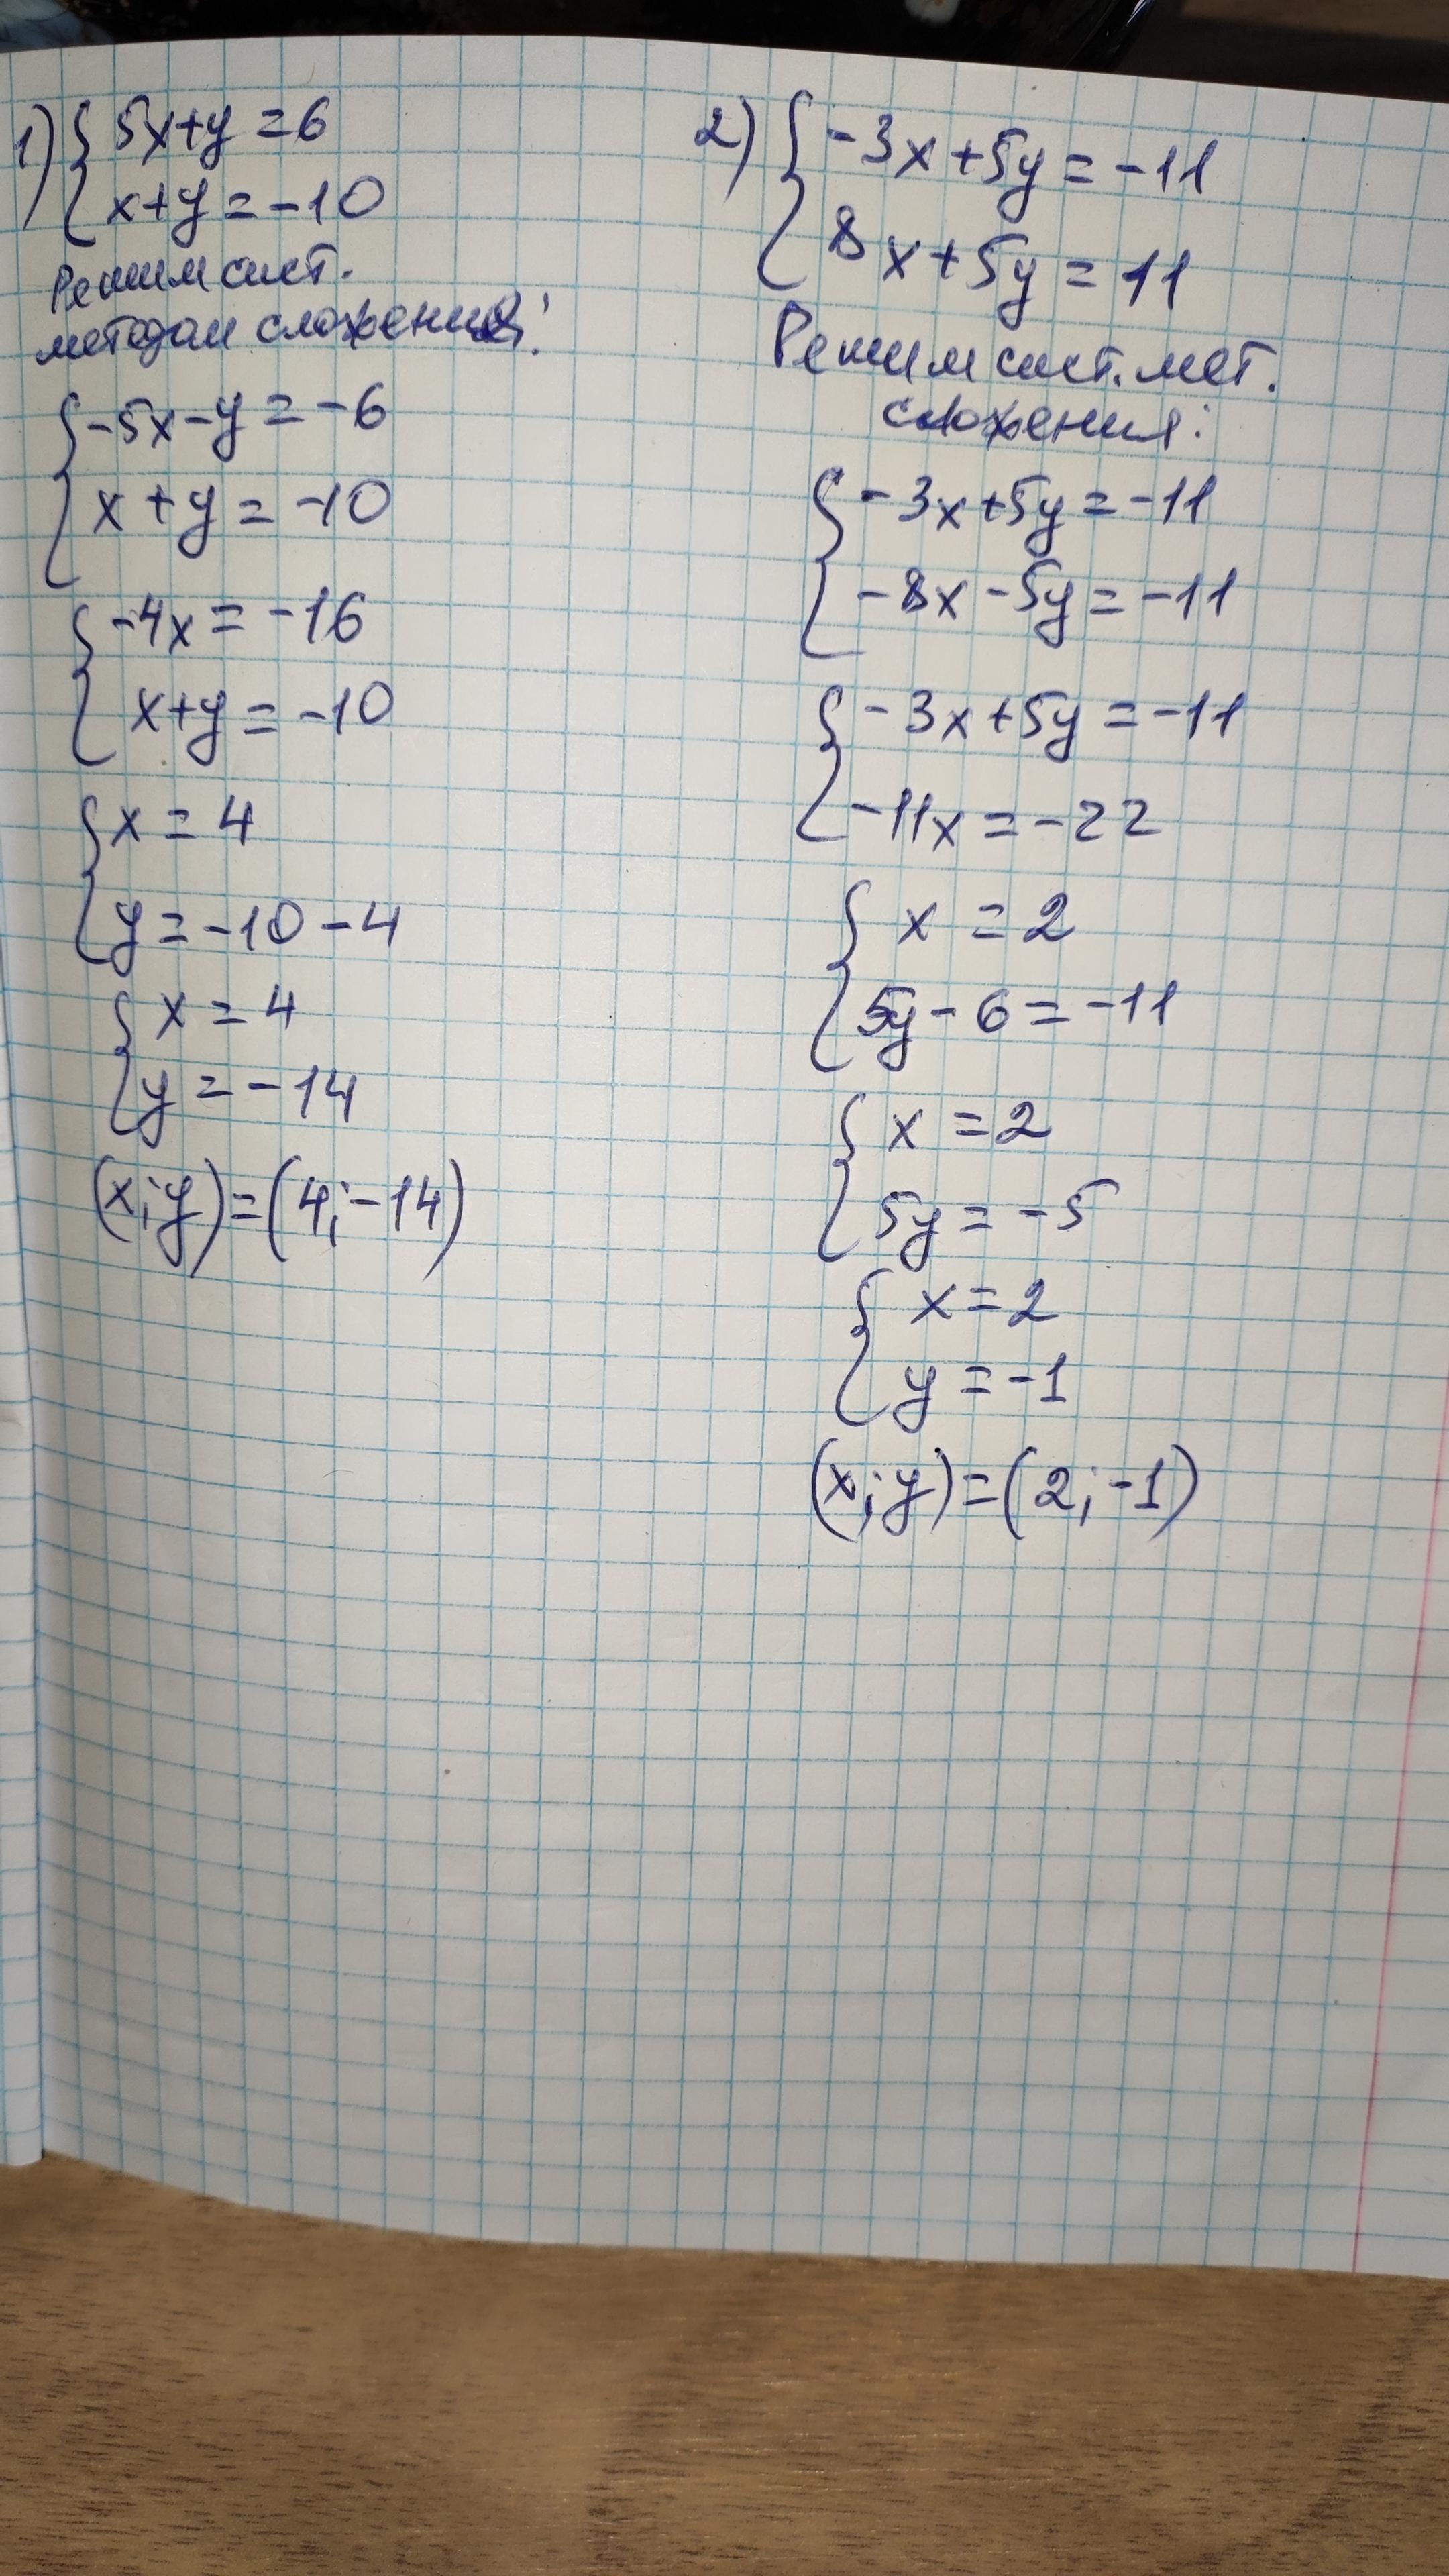 1) { 5x+y=6
x+y=-10
Решим сист.
методом сложения:
{ -5x-y=-6
x+y=-10
{ -4x=-16
x+y=-10
{ x=4
y=-10-4
{ x=4
y=-14
(x;y)=(4;-14)
2) { -3x+5y=-11
8x+5y=11
Решим сист. мет.
сложения:
{ -3x+5y=-11
-8x-5y=-11
{ -3x+5y=-11
-11x=-22
{ x=2
5y-6=-11
{ x=2
5y=-5
{ x=2
y=-1
(x;y)=(2;-1)